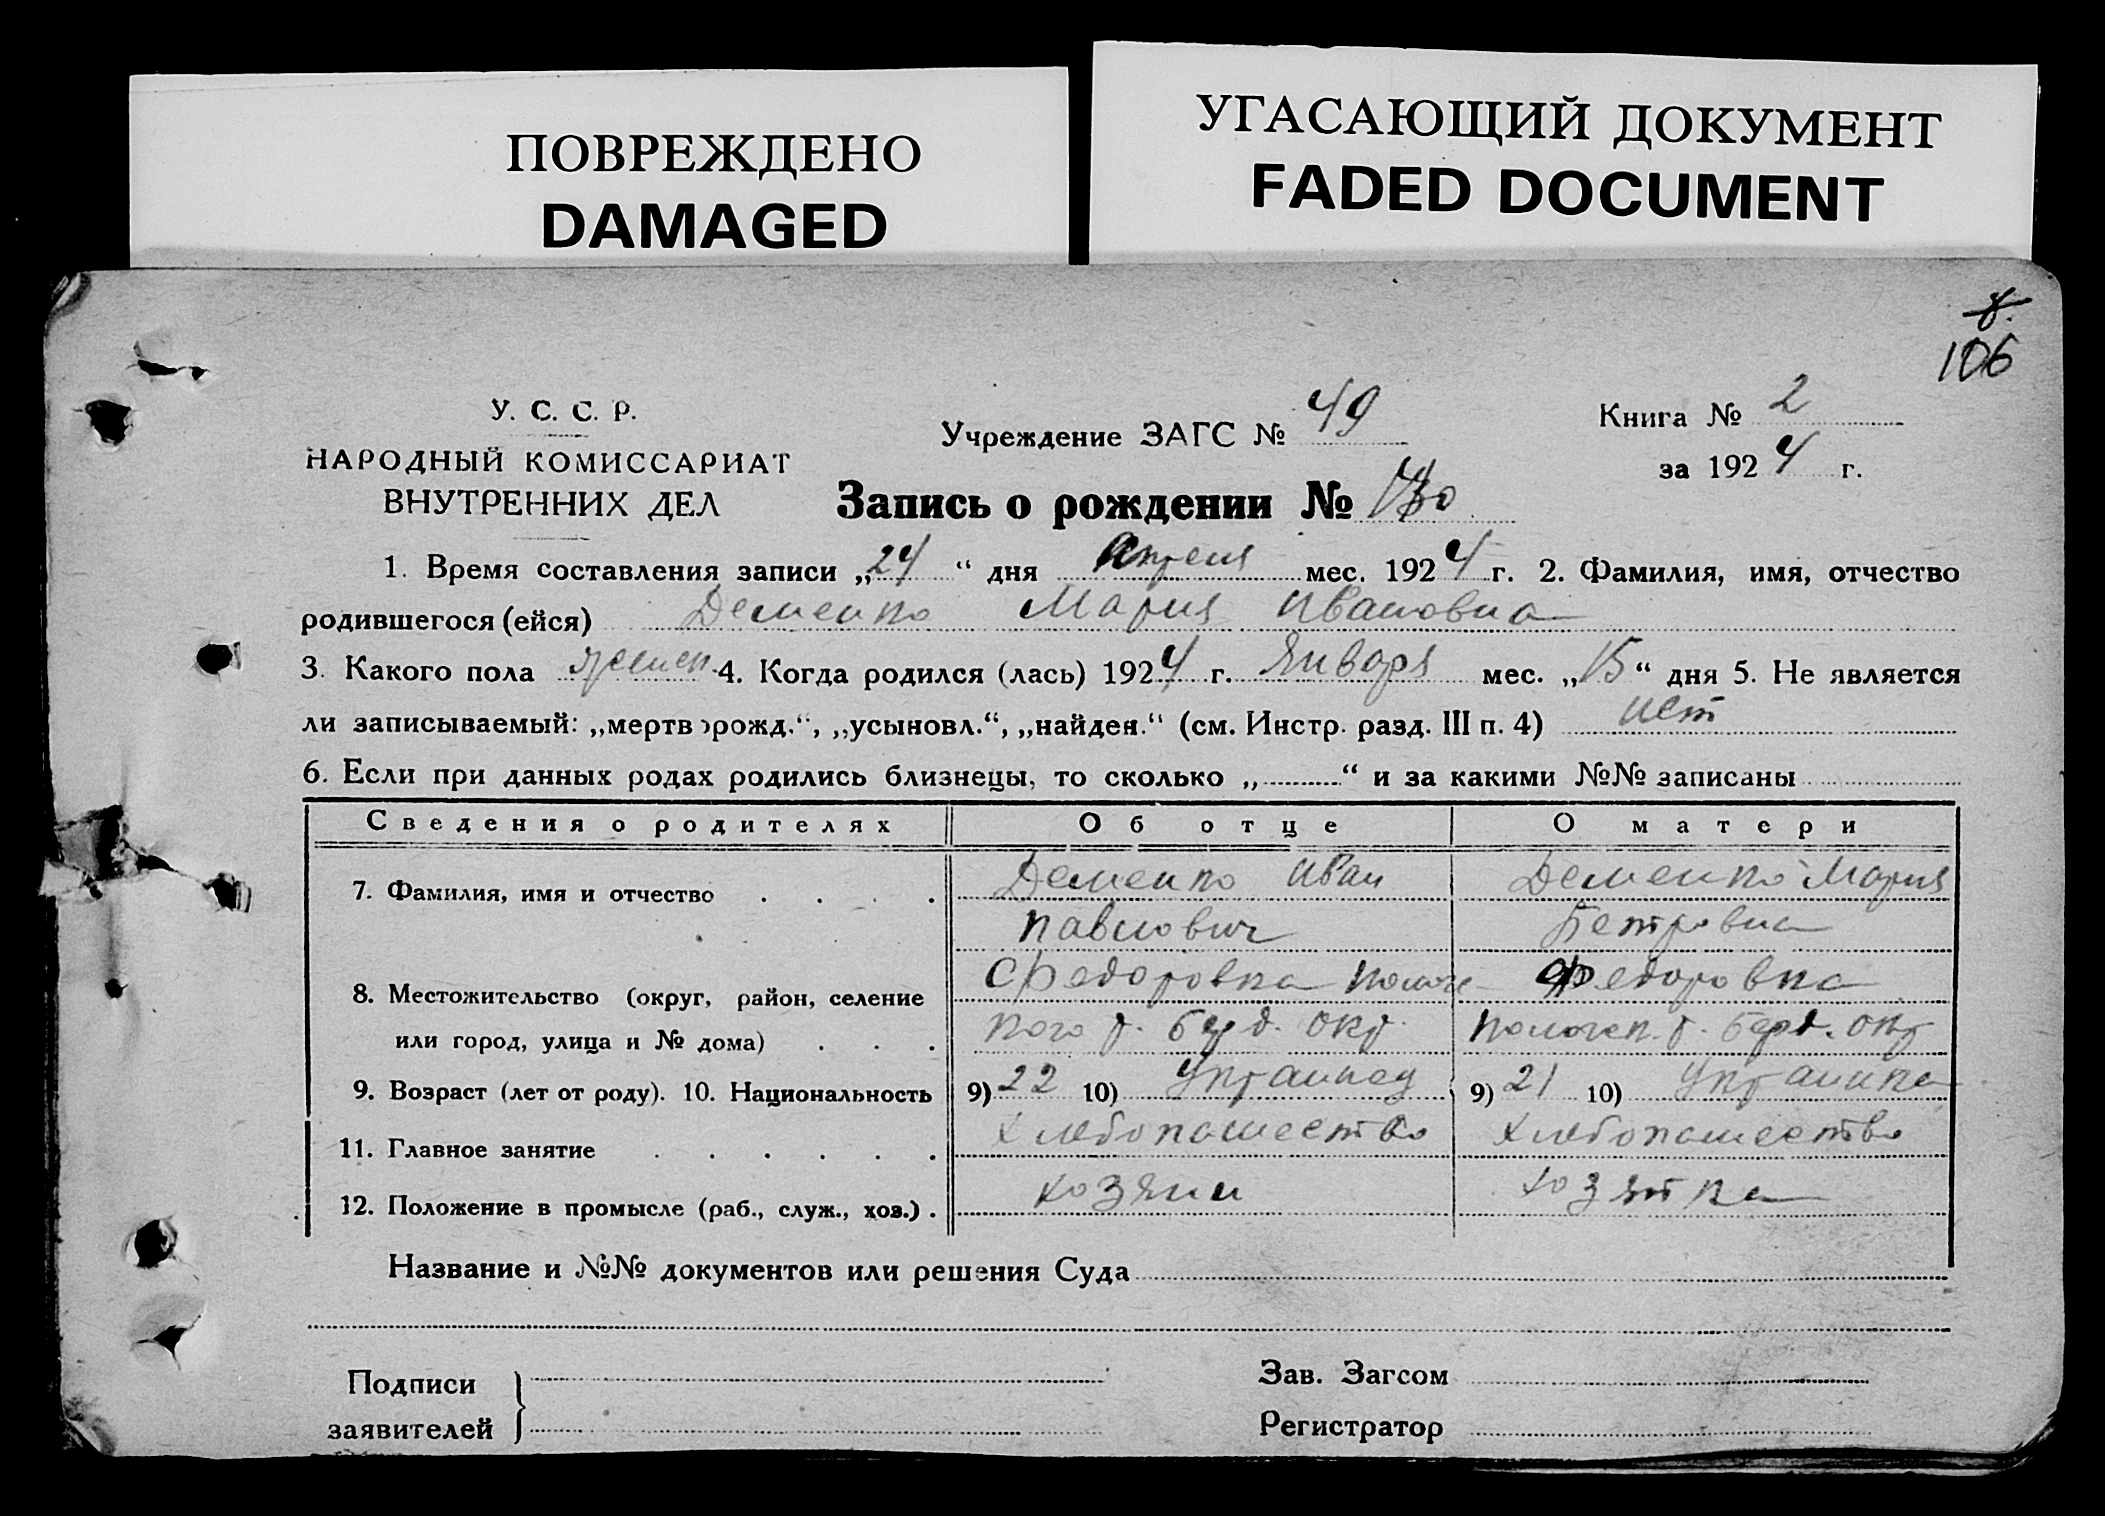 ПОВРЕЖДЕНО
DAMAGED
УГАСАЮЩИЙ ДОКУМЕНТ
FADED DOCUMENT
8.
106
У. С. С. Р.
НАРОДНЫЙ КОМИССАРИАТ
ВНУТРЕННИХ ДЕЛ
Учреждение ЗАГС № 49
Книга № 2
за 1924 г.
Запись о рождении №
1. Время составления записи „24“ дня Апреля мес. 1924 г. 2. Фамилия, имя, отчество
родившегося (ейся) Деменко Мария Ивановна
3. Какого пола женск. 4. Когда родился (лась) 1924 г. Января мес. „15“ дня 5. Не является
ли записываемый: „мертворожд.“, „усыновл.“, „найден.“ (см. Инстр. разд. III п. 4) нет
6. Если при данных родах родились близнецы, то сколько „ “ и за какими №№ записаны
Сведения о родителях Об отце О матери
7. Фамилия, имя и отчество Деменко Иван Деменко Мария
Павлович Петровна
8. Местожительство (округ, район, селение Федоровка Пологс- Федоровка
или город, улица и № дома) кого р. Берд. окр. Пологск. р. Берд. окр
9. Возраст (лет от роду). 10. Национальность 9) 22 10) Украинец 9) 21 10) Украинка
11. Главное занятие Хлебопашество Хлебопашество
12. Положение в промысле (раб., служ., хоз.) хозяин хозяйка
Название и №№ документов или решения Суда
Подписи
заявителей
Зав. Загсом
Регистратор